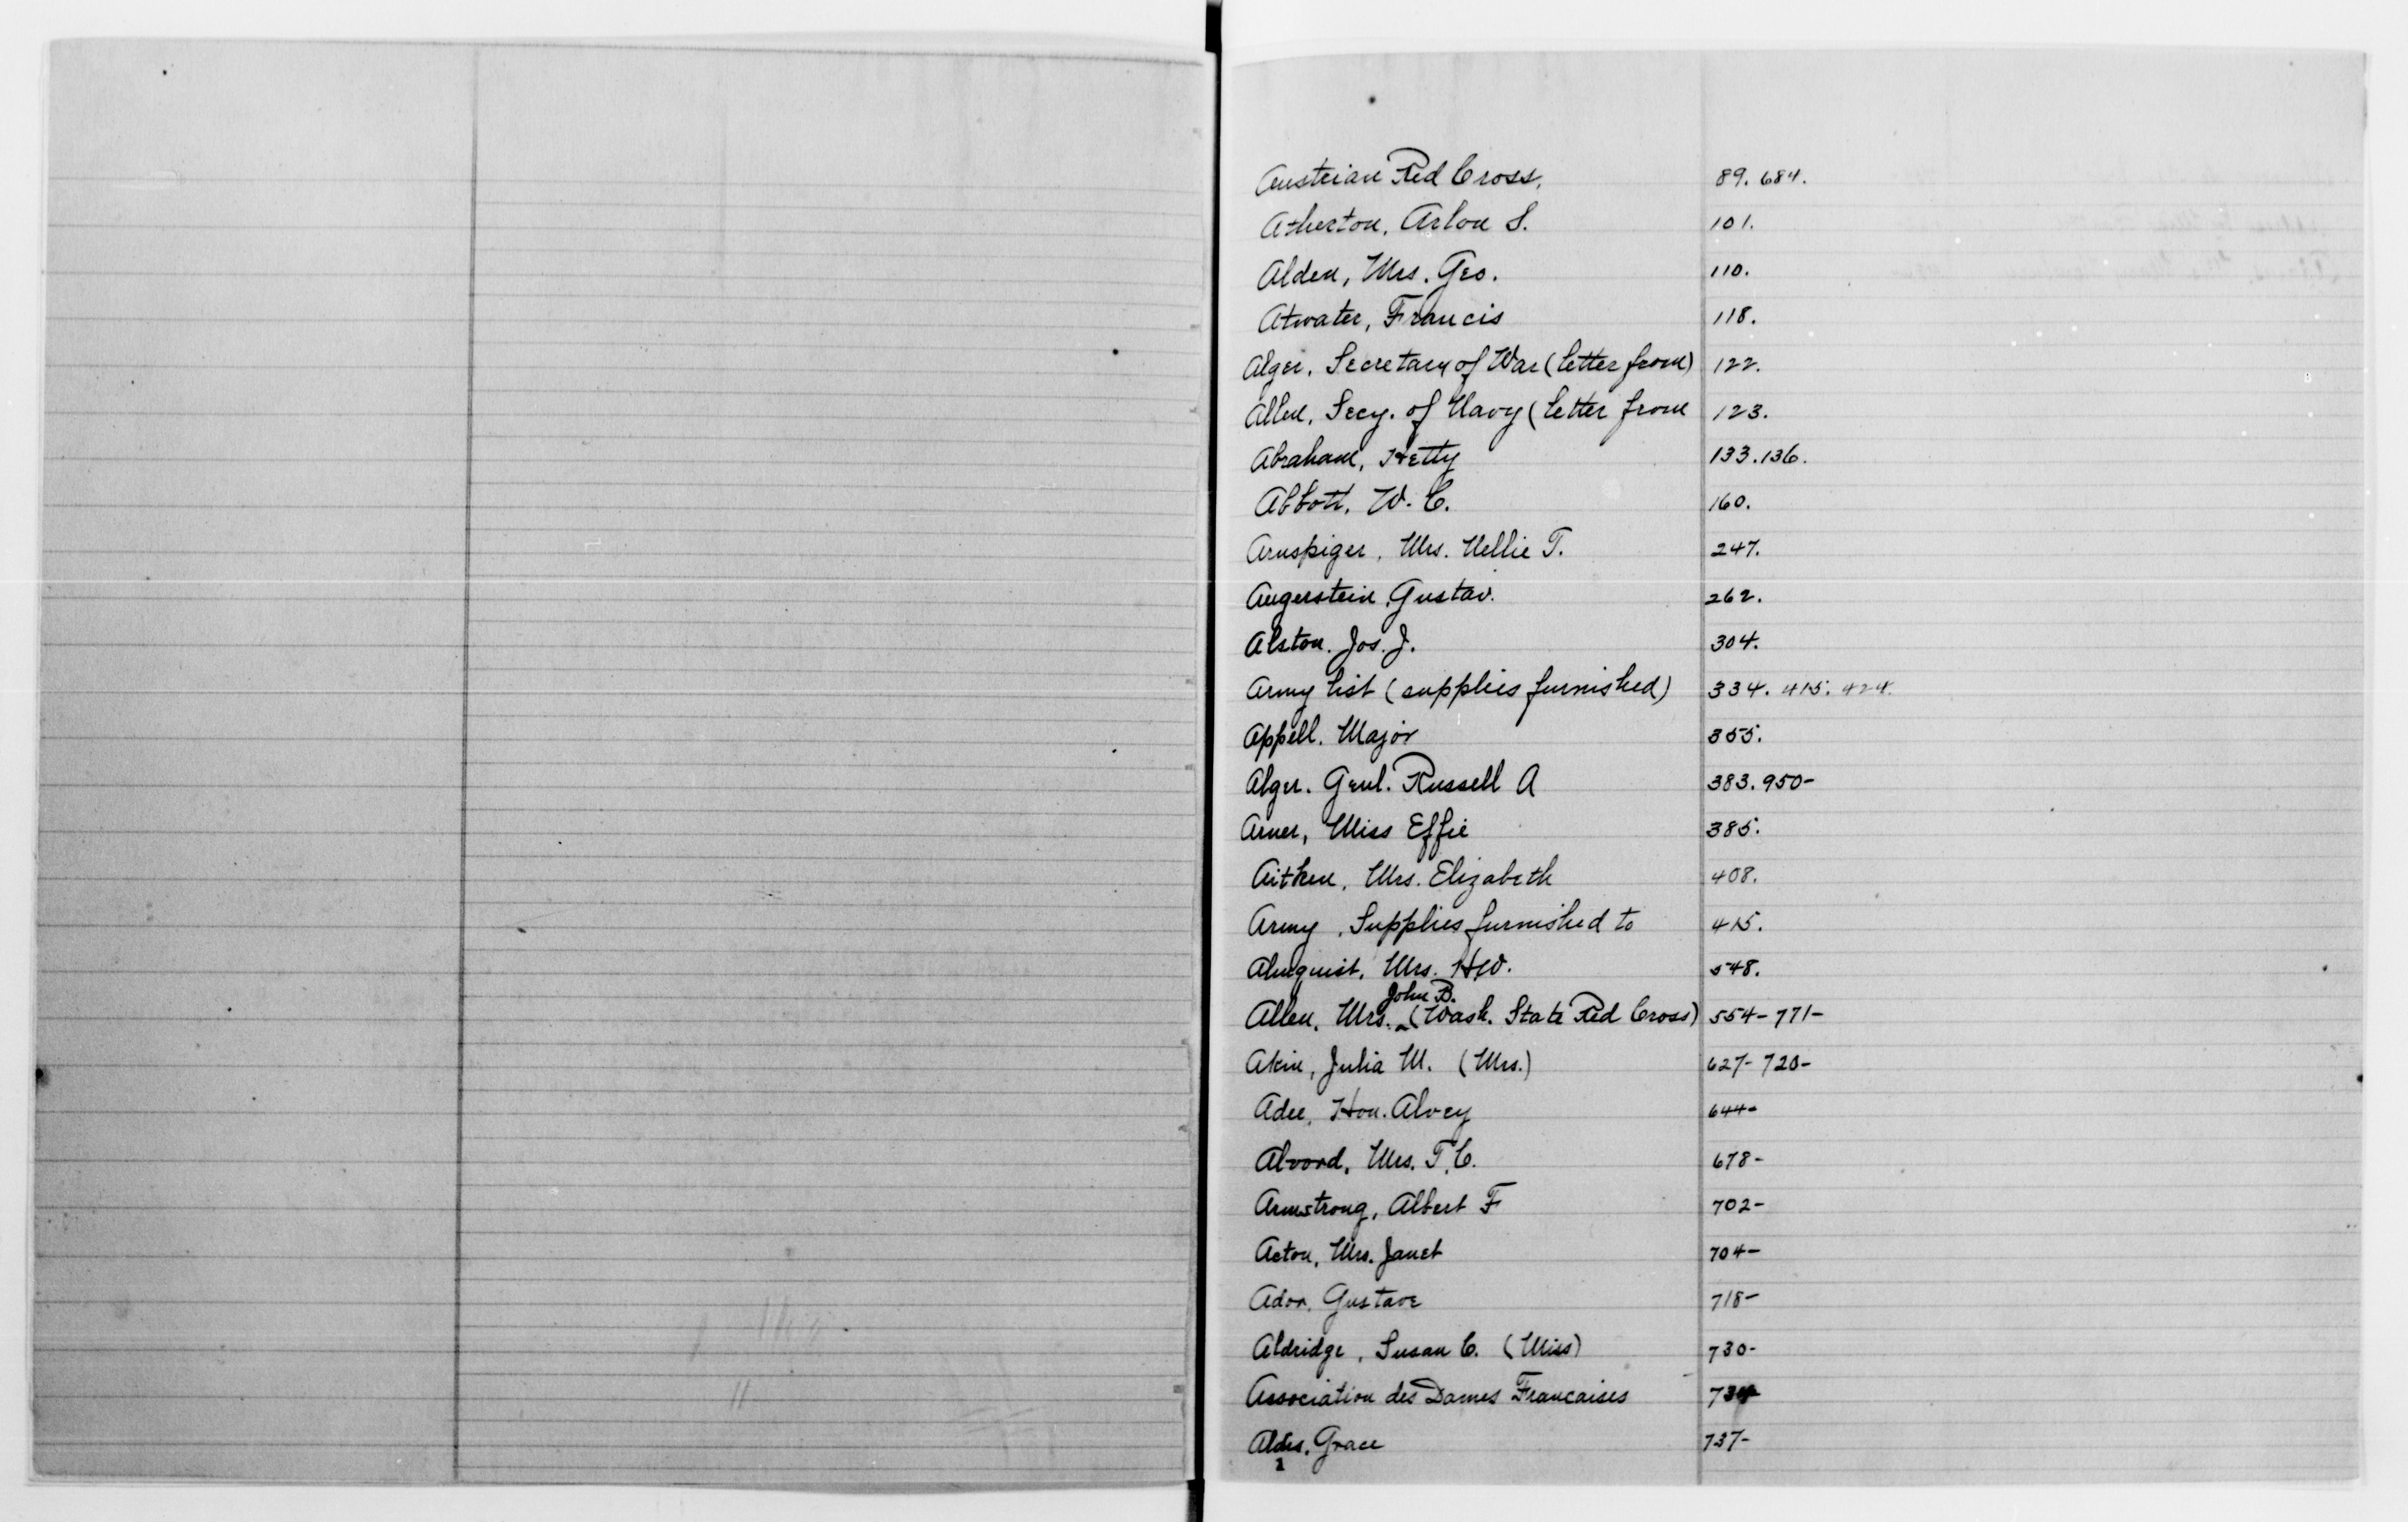 Austrian Red Cross, 89. 684.
Atherton, Arlon S. 101.
Alden, Mrs. Geo. 110.
Atwater, Francis 118.
Alger, Secretary of War (letter from) 122.
Allen, Secy. of Navy (letter from 123.
Abraham, Hetty 133.136.
Abbott, W. C. 160.
Arnspiger, Mrs. Nellie T. 247.
Augerstein, Gustav. 262.
Alston, Jos. J. 304.
Army list (supplies furnished) 334. 415. 424.
Appell. Major 355.
Alger. Genl. Russell A 383.950-
Arner, Miss Effie 385.
Aitken, Mrs. Elizabeth 408.
Army, Supplies furnished to 415.
Almquist, Mrs. H.W. 548.
John B.
Allen, Mrs. (Wash. State Red Cross) 554-771-
Akin, Julia M. (Mrs.) 627-720-
Adee, Hon. Alvey 644-
Alvord, Mrs. T.C. 678-
Armstrong, Albert F 702-
Acton, Mrs. Janet 704-
Ador, Gustave 718-
Aldridge, Susan C. (Miss) 730-
Association des Dames Francaises 734-
Aldis, Grace 737-
1